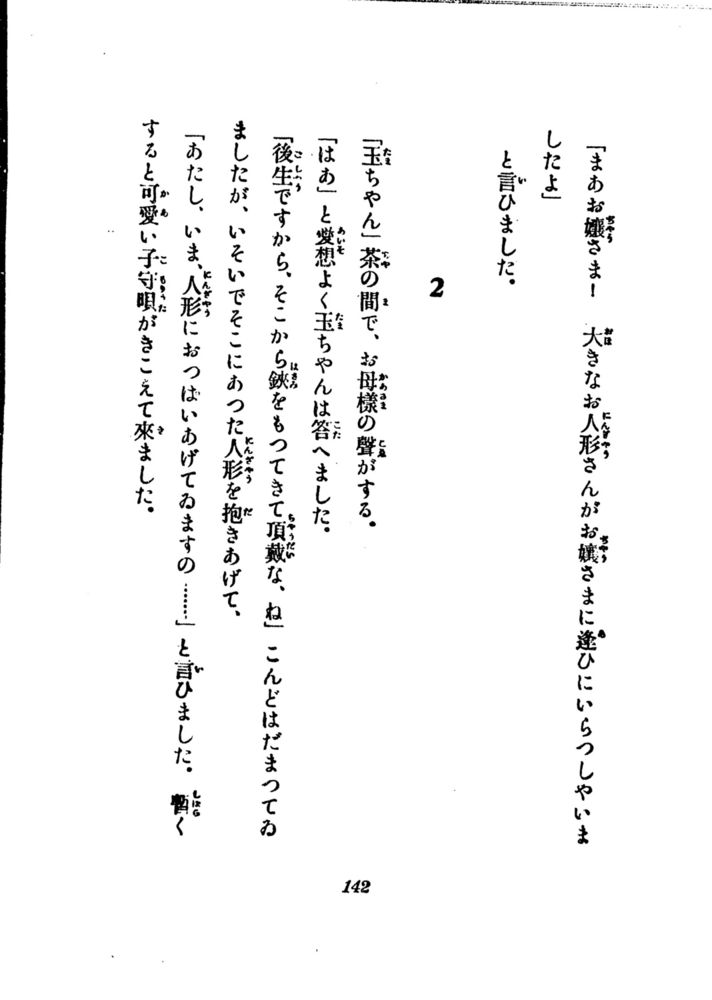 「まあお孃さま！　大きなお人形さんがお孃さまに逢ひにいらつしやいま
したよ」
と言ひました。
2
「玉ちやん」茶の間で、お母樣の聲がする。
「はあ」と愛想よく玉ちやんは答へました。
「後生ですから、そこから鋏をもつてきて頂戴な、ね」こんどはだまつてゐ
ましたが、いそいでそこにあつた人形を抱きあげて、
「あたし、いま、人形におつぱいあげてゐますの……」と言ひました。暫く
すると可愛い子守唄がきこえて來ました。
142